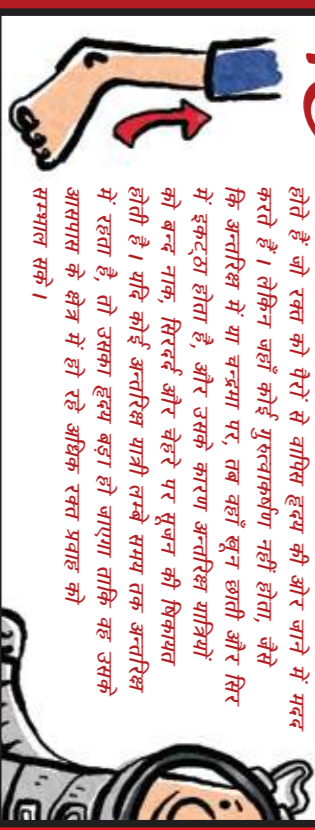 होते हैं जो रक्त को पैरों से वापिस हृदय की ओर जाने में मदद
करते हैं। लेकिन जहाँ कोई गुरुत्वाकर्षण नहीं होता, जैसे
कि अन्तरिक्ष में या चन्द्रमा पर, तब वहाँ खून छाती और सिर
में इकट्ठा होता है, और उसके कारण अन्तरिक्ष यात्रियों
को बन्द नाक, सिरदर्द और चेहरे पर सूजन की शिकायत
होती है। यदि कोई अन्तरिक्ष यात्री लम्बे समय तक अन्तरिक्ष
में रहता है, तो उसका हृदय बड़ा हो जाएगा ताकि वह उसके
आसपास के क्षेत्र में हो रहे अधिक रक्त प्रवाह को
सम्भाल सके।